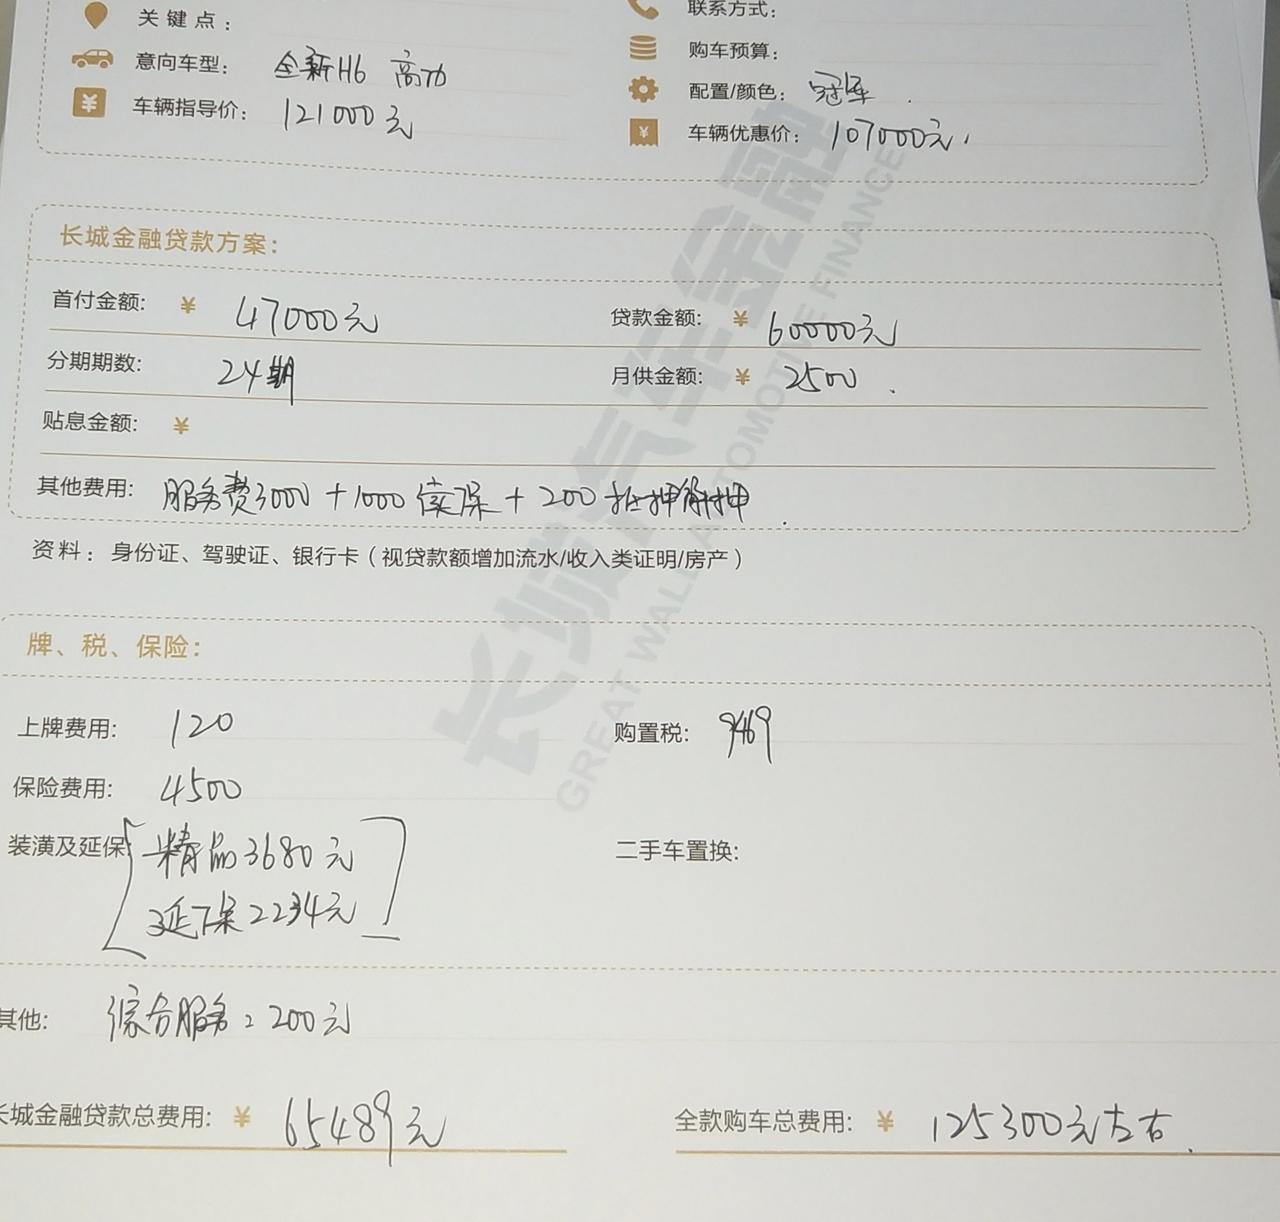 关键点: 联系方式:
意向车型: 全新H6 高功 购车预算:
车辆指导价: 121000元 配置/颜色: 冠军
车辆优惠价: 107000元
长城金融贷款方案:
首付金额: ¥ 47000元 贷款金额: ¥ 60000元
分期期数: 24期 月供金额: ¥ 2500
贴息金额: ¥
其他费用: 服务费3000+1000续保+200抵押解押
资料: 身份证、驾驶证、银行卡(视贷款额增加流水/收入类证明/房产)
牌、税、保险:
上牌费用: 120 购置税: 9469
保险费用: 4500
装潢及延保 精品3680元 二手车置换:
延保2234元
其他: 综合服务:200元
长城金融贷款总费用: ¥ 65489元 全款购车总费用: ¥ 125300元左右
长城汽车金融
GREAT WALL AUTOMOTIVE FINANCE